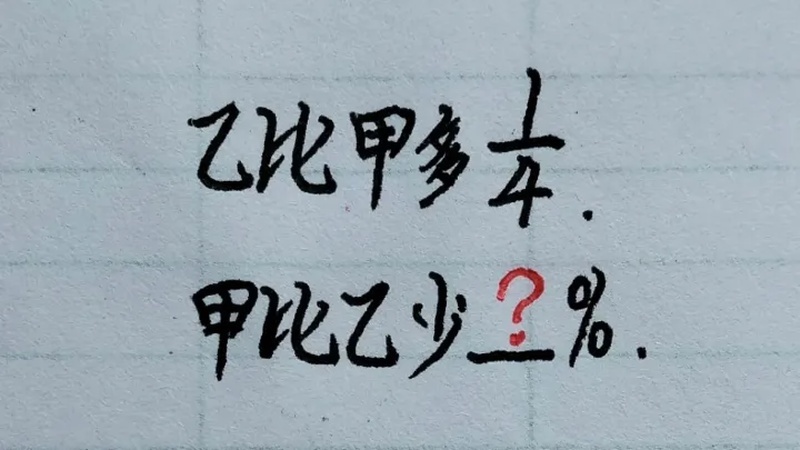 乙比甲多1/4.
甲比乙少?%.